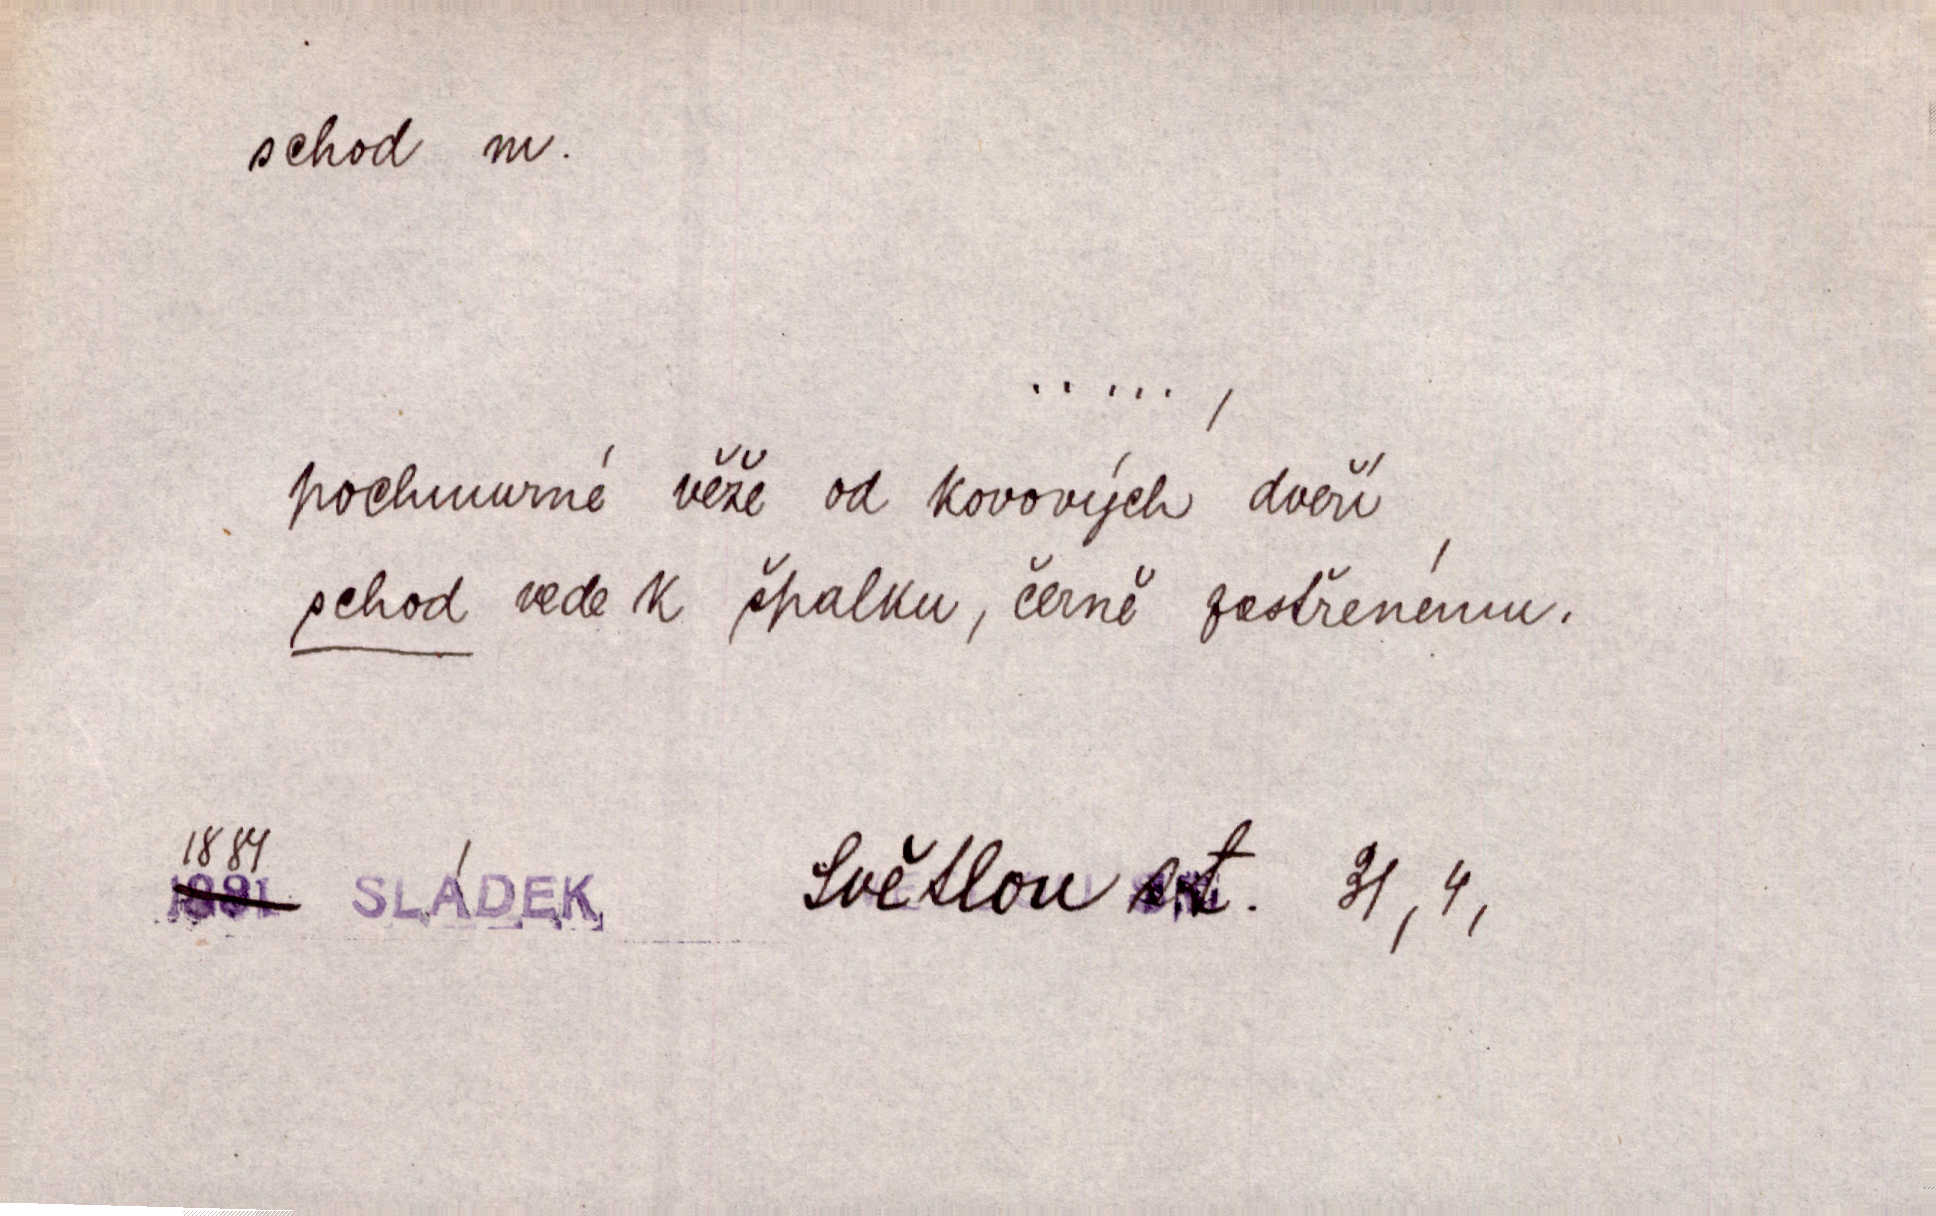 schod m.
.....,
pochmurné věže od kovových dveří
schod vede k špalku, černě zastřenému.
1884
SLÁDEK, Světlou st. 31, 4,